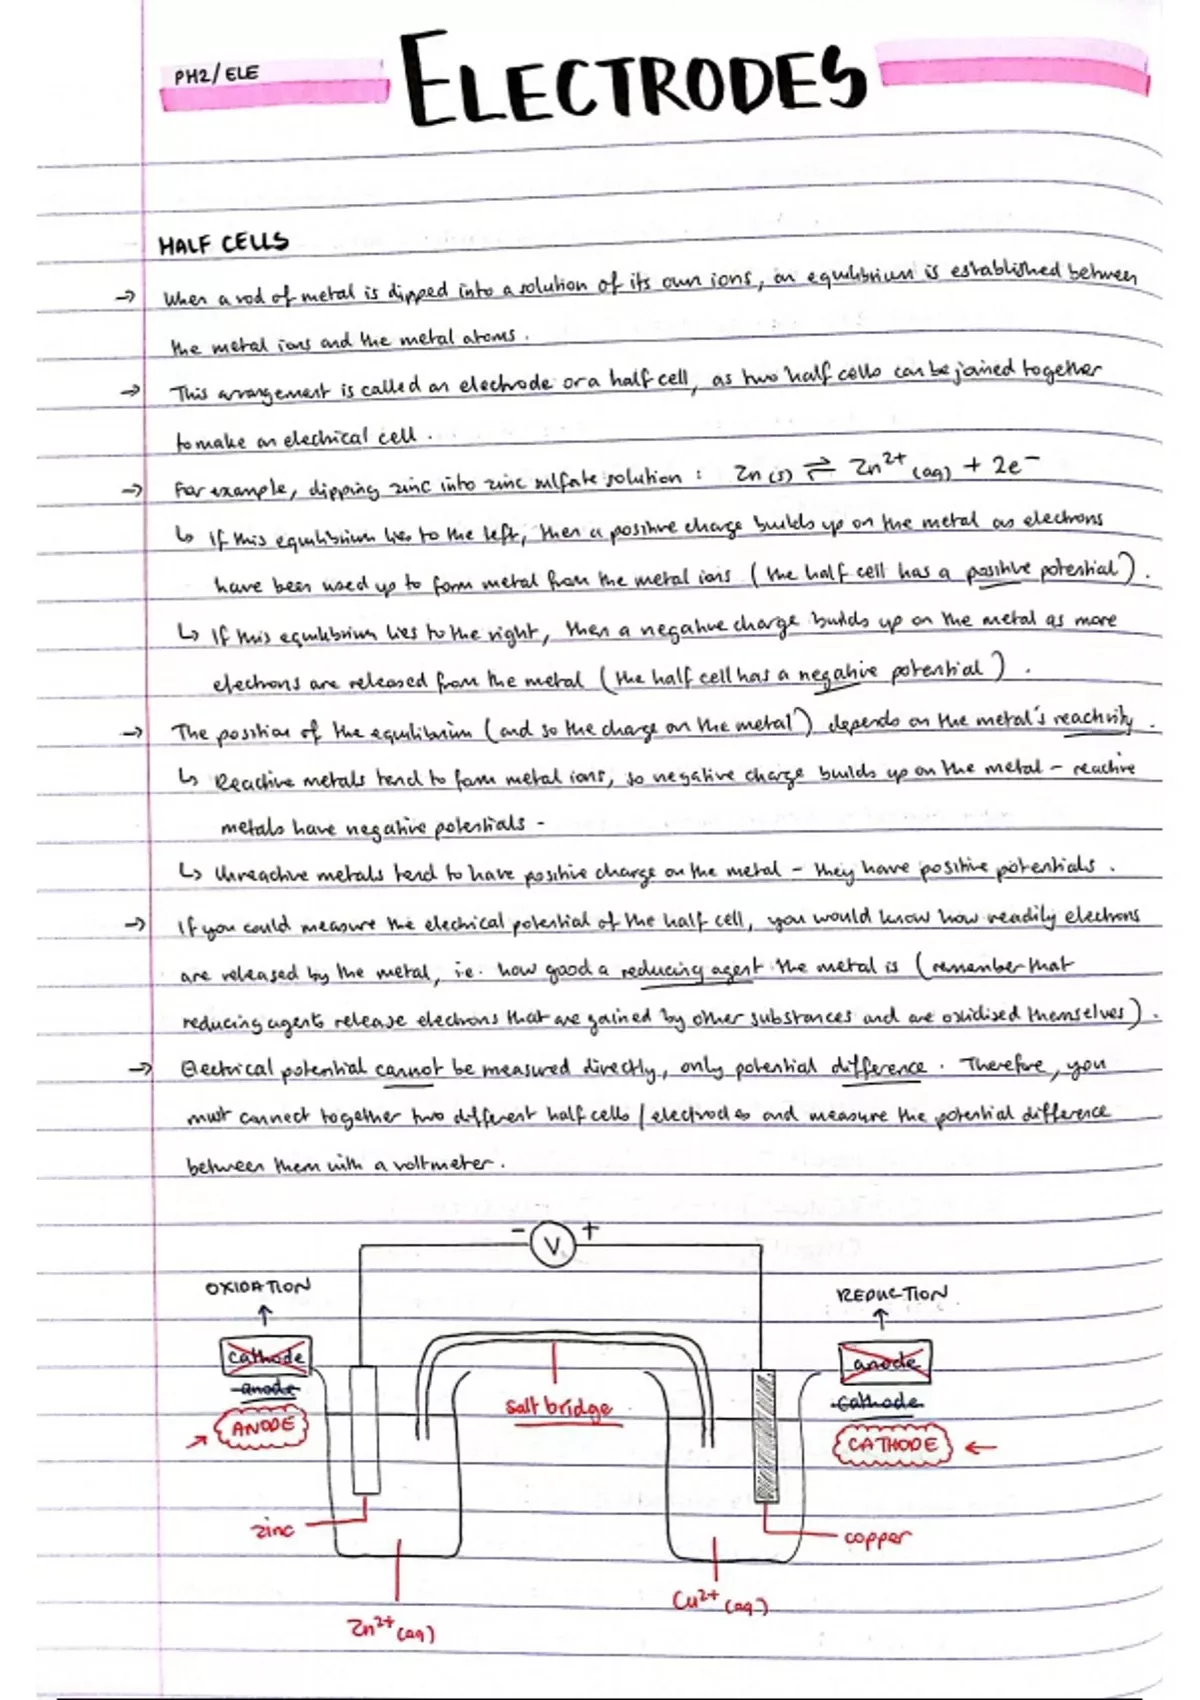 PH2/ELE
ELECTRODES
HALF CELLS
→ When a rod of metal is dipped into a solution of its own ions, an equilibrium is established between
the metal ions and the metal atoms.
→ This arrangement is called an electrode or a half cell, as two half cells can be joined together
to make an electrical cell.
→ For example, dipping zinc into zinc sulfate solution : Zn(s) ⇌ Zn²⁺(aq) + 2e⁻
↳ If this equilibrium lies to the left, then a positive charge builds up on the metal as electrons
have been used up to form metal from the metal ions (the half cell has a positive potential).
↳ If this equilibrium lies to the right, then a negative charge builds up on the metal as more
electrons are released from the metal (the half cell has a negative potential).
→ The position of the equilibrium (and so the charge on the metal) depends on the metal's reactivity.
↳ Reactive metals tend to form metal ions, so negative charge builds up on the metal - reactive
metals have negative potentials -
↳ Unreactive metals tend to have positive charge on the metal - they have positive potentials.
→ If you could measure the electrical potential of the half cell, you would know how readily electrons
are released by the metal, i.e. how good a reducing agent the metal is (remember that
reducing agents release electrons that are gained by other substances and are oxidised themselves).
→ Electrical potential cannot be measured directly, only potential difference. Therefore, you
must connect together two different half cells / electrodes and measure the potential difference
between them with a voltmeter.
- V +
OXIDATION
REDUCTION
cathode
anode
anode
cathode
salt bridge
ANODE
CATHODE
zinc
copper
Cu²⁺(aq)
Zn²⁺(aq)